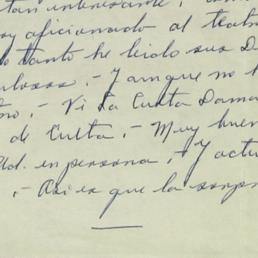 tan interesante,
y aficionado al teatro
o tanto he leido sus D
. - Y aunque no t
. - Vi La Culta Dama
de Culta. - Muy buen
Ud. en persona. - Y actu
. - Asi es que la sorp